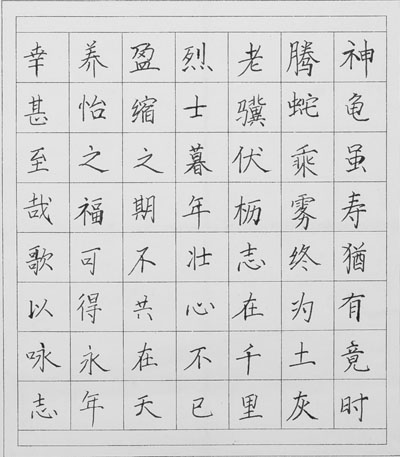 神龟虽寿猶有竟时
腾蛇乘雾终为土灰
老骥伏枥志在千里
烈士暮年壮心不已
盈缩之期不共在天
养怡之福可得永年
幸甚至哉歌以咏志